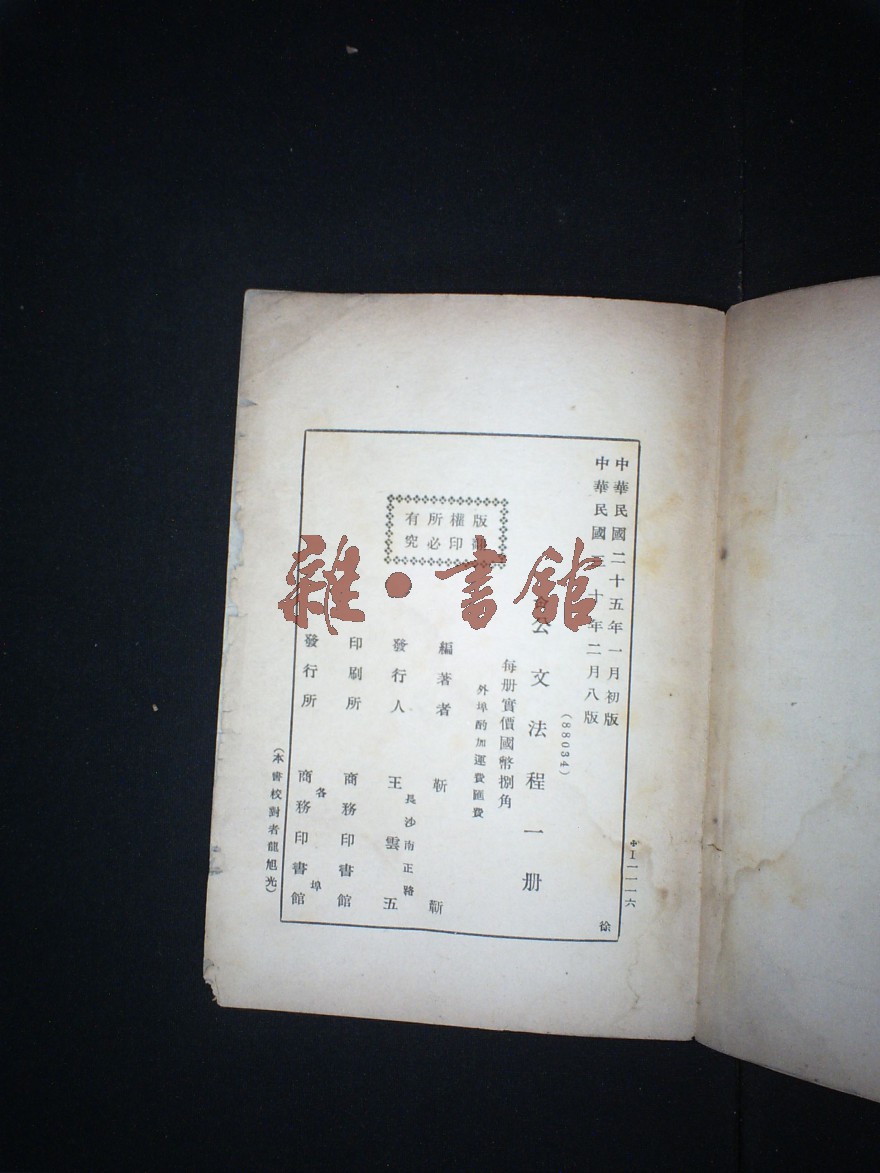 中華民國二十五年一月初版
中華民國十年二月八版
(88034)
公文法程一册
每册實價國幣捌角
外埠酌加運費匯費
版權所有
印必究
編著者 靳
發行人 王雲五
長沙南正路
印刷所 商務印書館
發行所 商務印書館
各埠
(本書校對者龍旭光)
I一一一六
徐
雜·書館